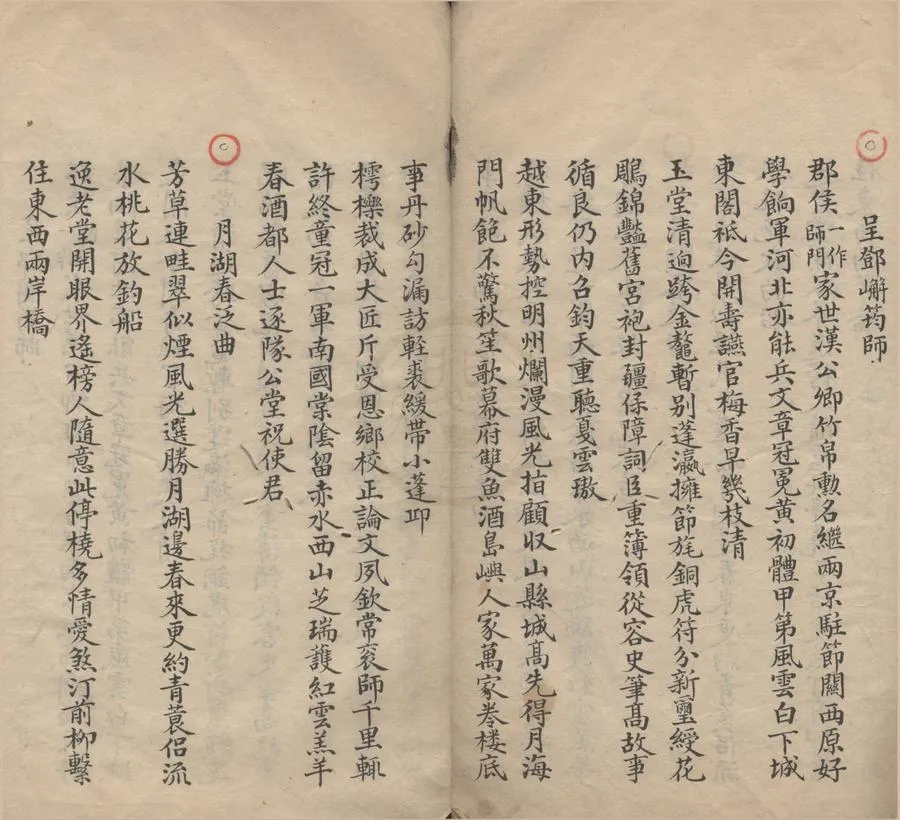 呈鄧嶰筠師
郡侯一作師門家世漢公卿竹帛勲名繼兩京駐節關西原好
學餉軍河北亦能兵文章冠冕黃初體甲第風雲白下城
東閣祗今開壽讌官梅香早幾枝清
玉堂清迥跨金鰲暫别蓬瀛擁節旄銅虎符分新璽綬花
鵰錦豔舊宮袍封疆保障詞臣重簿領從容史筆高故事
循良仍内召鈞天重聽戛雲璈
越東形勢控明州爛漫風光指顧収山縣城高先得月海
門帆飽不驚秋笙歌幕府雙魚酒島嶼人家萬家巻楼底
事丹砂勾漏訪輕裘緩帶小蓬邱
樗櫟裁成大匠斤受恩鄉校正論文夙欽常衮師千里輒
許終童冠一軍南國棠陰留赤水西山芝瑞護紅雲羔羊
春酒都人士逐隊公堂祝使君
月湖春泛曲
芳草連畦翠似煙風光選勝月湖邊春來更約青蓑侣流
水桃花放釣船
逸老堂開眼界遙榜人隨意此停橈多情愛煞汀前柳繫
住東西兩岸橋